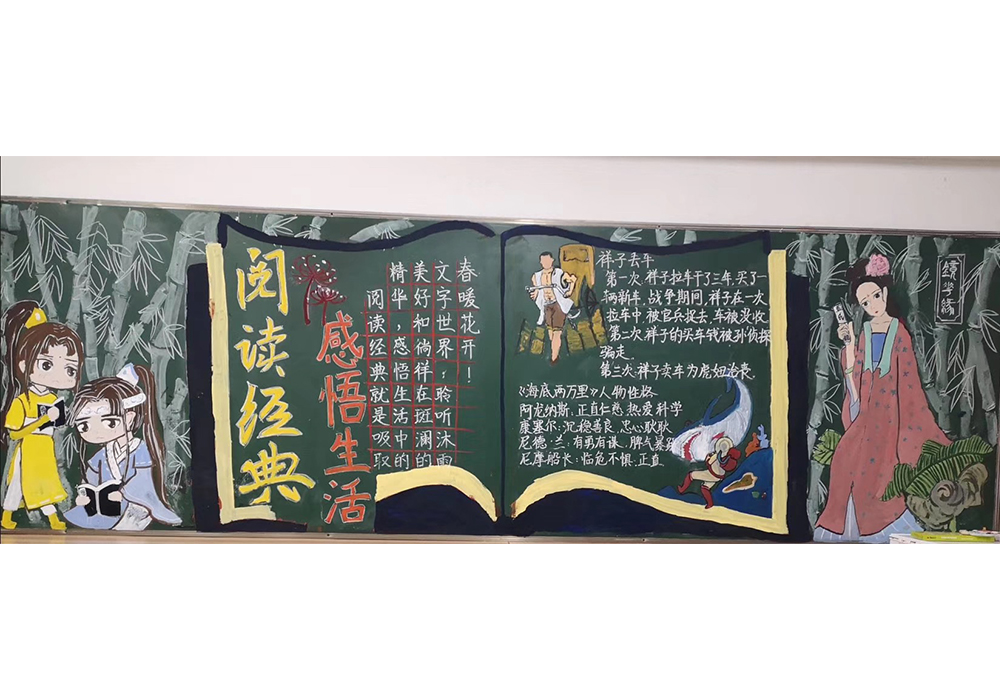 阅读经典
感悟生活
阅读经典就是吸取
精华，感悟生活中的
美好和倘徉在斑澜的
文字世界；聆听沐雨
春暖花开！
祥子丢车
第一次 祥子拉车干了三年，买了一
辆新车，战争期间，祥子在一次
拉车中 被官兵捉去，车被没收
第二次 祥子的买车钱被孙侦探
骗走。
第三次 祥子卖车为虎妞治丧。
《海底两万里》人物性格
阿龙纳斯：正直仁慈 热爱科学
康塞尔：沉稳善良、忠心耿耿
尼德·兰：有勇有谋、脾气暴躁
尼摩船长：临危不惧、正直